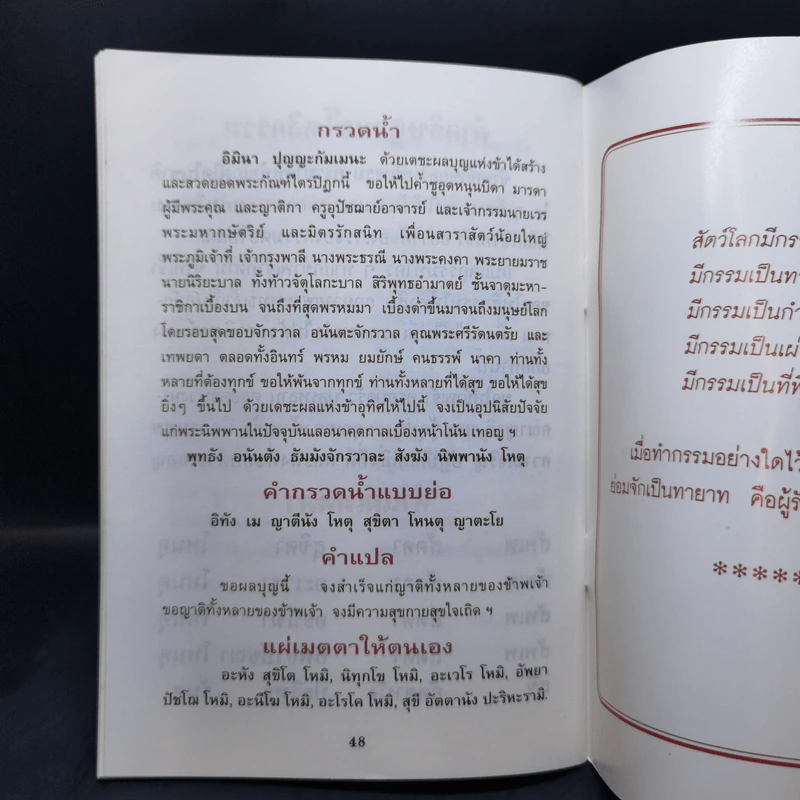 กรวดน้ำ
อิมินา ปุญญะกัมเมนะ ด้วยเดชะผลบุญแห่งข้าได้สร้าง
และสวดยอดพระกัณฑ์ไตรปิฎกนี้ ขอให้ไปค้ำชูอุดหนุนบิดา มารดา
ผู้มีพระคุณ และญาติกา ครูอุปัชฌาย์อาจารย์ และเจ้ากรรมนายเวร
พระมหากษัตริย์ และมิตรรักสนิท เพื่อนสาราสัตว์น้อยใหญ่
พระภูมิเจ้าที่ เจ้ากรุงพาลี นางพระธรณี นางพระคงคา พระยายมราช
นายนิริยะบาล ทั้งท้าวจัตุโลกะบาล สิริพุทธอำมาตย์ ชั้นจาตุมะหา-
ราชิกาเบื้องบน จนถึงที่สุดพรหมมา เบื้องต่ำขึ้นมาจนถึงมนุษย์โลก
โดยรอบสุดขอบจักรวาล อนันตะจักรวาล คุณพระศรีรัตนตรัย และ
เทพยดา ตลอดทั้งอินทร์ พรหม ยมยักษ์ คนธรรพ์ นาคา ท่านทั้ง
หลายที่ต้องทุกข์ ขอให้พ้นจากทุกข์ ท่านทั้งหลายที่ได้สุข ขอให้ได้สุข
ยิ่งๆ ขึ้นไป ด้วยเดชะผลแห่งข้าอุทิศให้ไปนี้ จงเป็นอุปนิสัยปัจจัย
แก่พระนิพพานในปัจจุบันแลอนาคตกาลเบื้องหน้าโน้น เทอญ ฯ
พุทธัง อนันตัง ธัมมังจักรวาละ สังฆัง นิพพานัง โหตุ
คำกรวดน้ำแบบย่อ
อิทัง เม ญาตีนัง โหตุ สุขิตา โหนตุ ญาตะโย
คำแปล
ขอผลบุญนี้ จงสำเร็จแก่ญาติทั้งหลายของข้าพเจ้า
ขอญาติทั้งหลายของข้าพเจ้า จงมีความสุขกายสุขใจเถิด ฯ
แผ่เมตตาให้ตนเอง
อะหัง สุขิโต โหมิ, นิทุกโข โหมิ, อะเวโร โหมิ, อัพยา
ปัชโฌ โหมิ, อะนีโฆ โหมิ, อะโรโค โหมิ, สุขี อัตตานัง ปะริหะรามิ.
48
สัตว์โลกมีกร
มีกรรมเป็นทา
มีกรรมเป็นกำ
มีกรรมเป็นเผ่
มีกรรมเป็นที่พึ
เมื่อทำกรรมอย่างใดไว้
ย่อมจักเป็นทายาท คือผู้รั
*****